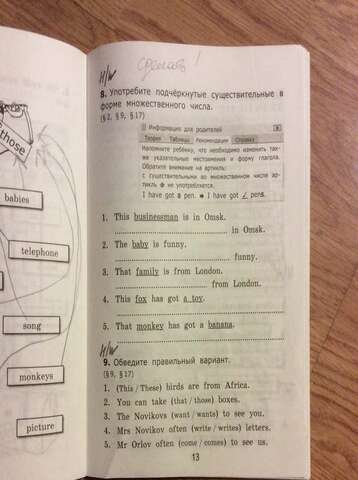 those
babies
telephone
song
monkeys
picture
H/w
сделать !
8. Употребите подчёркнутые существительные в
форме множественного числа.
(§ 2, § 9, § 17)
Информация для родителей
Теория Таблицы Рекомендации Справка
Напомните ребёнку, что необходимо изменить так-
же указательные местоимения и форму глагола.
Обратите внимание на артикль:
с существительными во множественном числе ар-
тикль a не употребляется.
I have got a pen. ● I have got ∠ pens.
1. This businessman is in Omsk.
.............................. in Omsk.
2. The baby is funny.
.............................. funny.
3. That family is from London.
.............................. from London.
4. This fox has got a toy.
..............................
5. That monkey has got a banana.
..............................
H/w
9. Обведите правильный вариант.
(§ 9, § 17)
1. (This / These) birds are from Africa.
2. You can take (that / those) boxes.
3. The Novikovs (want / wants) to see you.
4. Mrs Novikov often (write / writes) letters.
5. Mr Orlov often (come / comes) to see us.
13